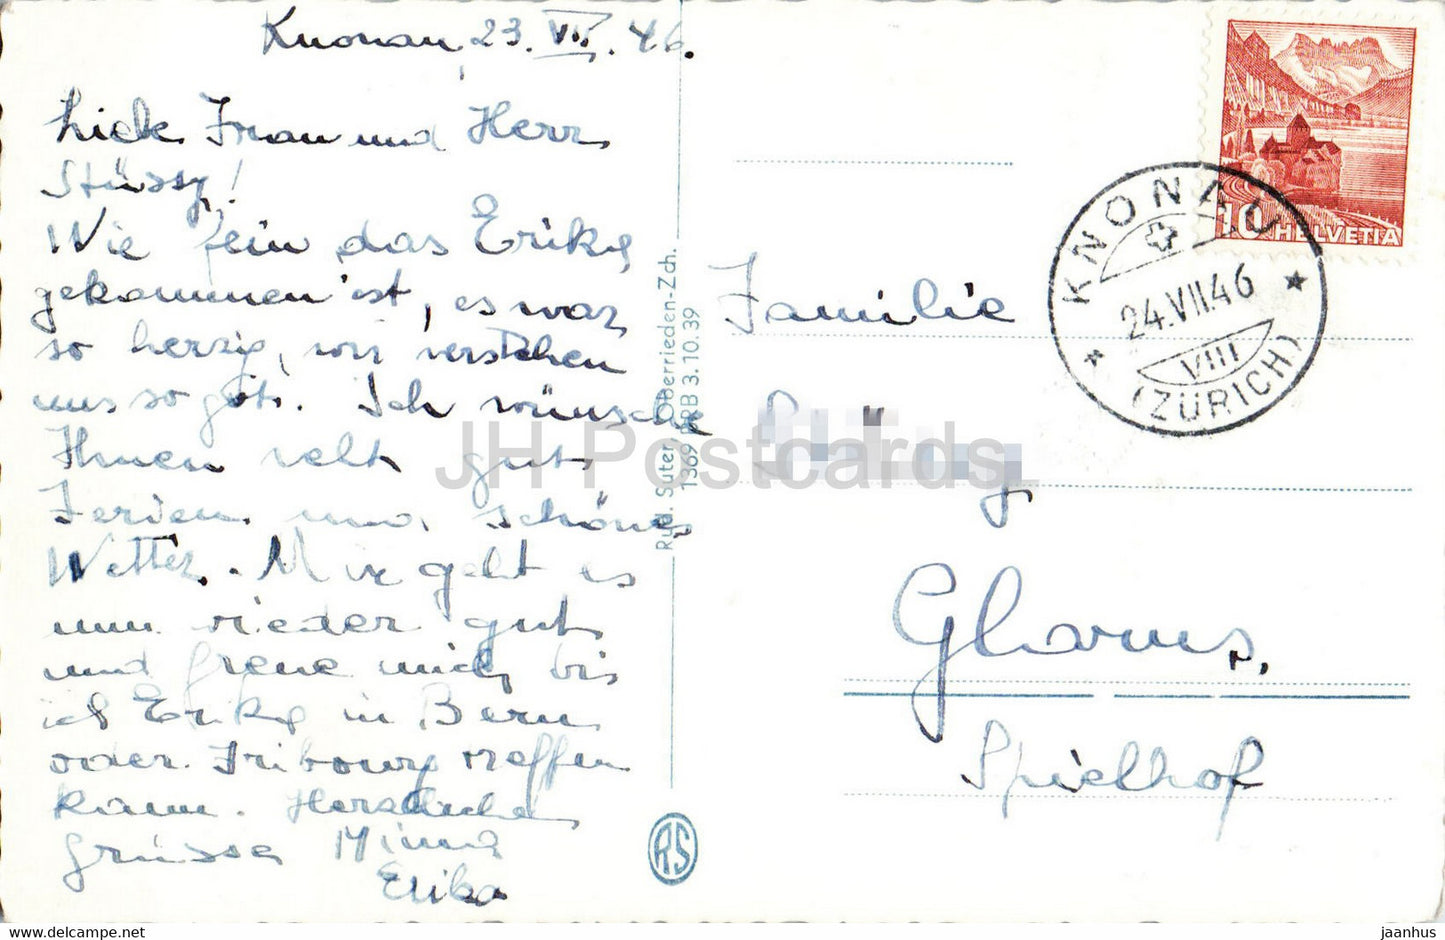 Knonau, 23. VII. 46.
Liebe Frau und Herr
Stüssy!
Wie fein das Erika
gekommen ist, es war
so herzig, wir verstehen
uns so gut. Ich wünsche
Ihnen recht gute
Ferien und schönes
Wetter. - Mir geht es
nun wieder gut
und freue mich bis
ich Erika in Bern
oder Fribourg treffen
kann. Herzliche
Grüsse
Erika
Rud. Suter, Oberrieden-Zch.
1369 PRB 3.10.39
RS
10 HELVETIA
KNONAU
24.VII.46
VIII
(ZÜRICH)
Familie
Glarus,
Spielhof
JH Postcards
jaanhus
hip.ee/jaanhus.com